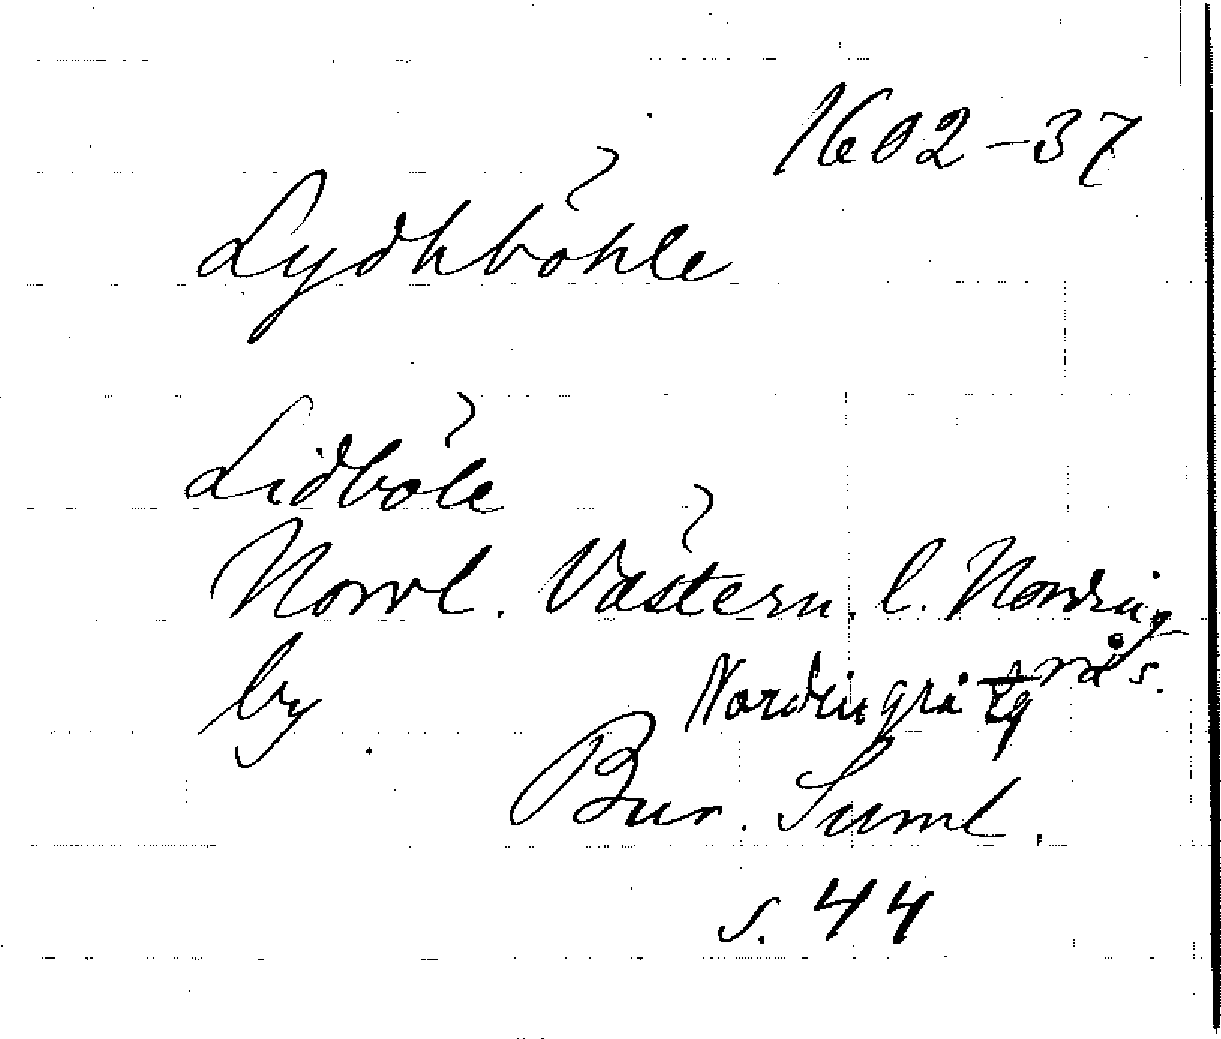 1602-37
Lydhböhle
Lidböle
Norrl. Västern. l. Nordingrå s.
by Nordingrå tg
Bur. Suml.
s. 44